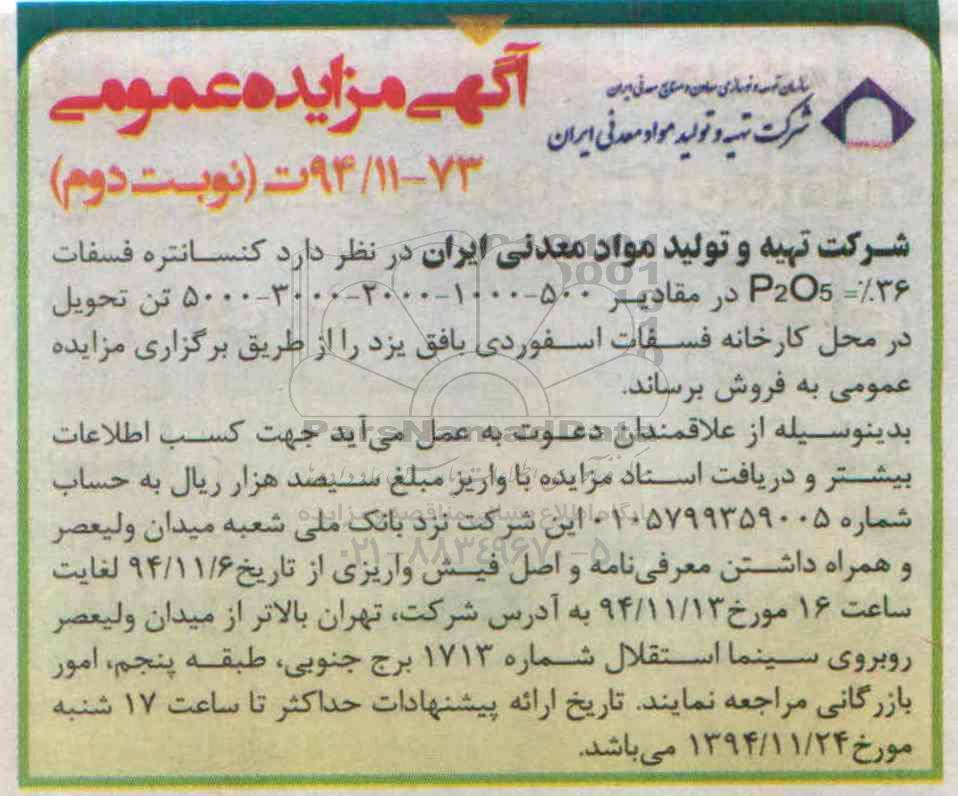 سازمان تهیه و نوسازی معادن و صنایع معدنی ایران
شرکت تهیه و تولید مواد معدنی ایران
آگهی مزایده عمومی
۷۳-۹۴/۱۱ت (نوبت دوم)
شرکت تهیه و تولید مواد معدنی ایران در نظر دارد کنسانتره فسفات
P2O5 =٪۳۶ در مقادیر ۵۰۰-۱۰۰۰-۲۰۰۰-۳۰۰۰-۵۰۰۰ تن تحویل
در محل کارخانه فسفات اسفوردی بافق یزد را از طریق برگزاری مزایده
عمومی به فروش برساند.
بدینوسیله از علاقمندان دعوت به عمل می‌آید جهت کسب اطلاعات
بیشتر و دریافت اسناد مزایده با واریز مبلغ سیصد هزار ریال به حساب
شماره ۰۱۰۵۷۹۹۳۵۹۰۰۵ این شرکت نزد بانک ملی شعبه میدان ولیعصر
و همراه داشتن معرفی‌نامه و اصل فیش واریزی از تاریخ ۹۴/۱۱/۶ لغایت
ساعت ۱۶ مورخ ۹۴/۱۱/۱۳ به آدرس شرکت، تهران بالاتر از میدان ولیعصر
روبروی سینما استقلال شماره ۱۷۱۳ برج جنوبی، طبقه پنجم، امور
بازرگانی مراجعه نمایند. تاریخ ارائه پیشنهادات حداکثر تا ساعت ۱۷ شنبه
مورخ ۱۳۹۴/۱۱/۲۴ می‌باشد.
ParsNamadData
پایگاه اطلاع رسانی مناقصه و مزایده
۰۲۱-۸۸۳۴۹۶۷۰-۵